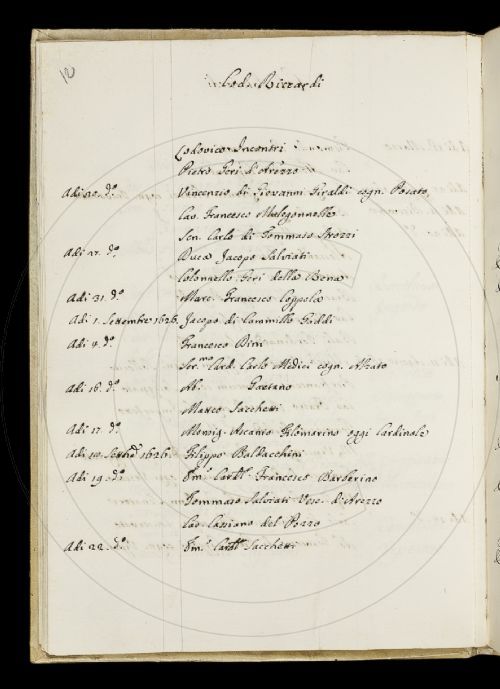 12
Cod. Riccardi
Lodovico Incontri
Pietro Geri d'Arezzo
Adi 20. do. Vincenzio di Giovanni Giraldi cogn. Posato
Cav. Francesco Malegonnelle
Sen. Carlo di Tommaso Strozzi
Adi 27. do. Duca Jacopo Salviati
Colonnello Geri della Rena
Adi 31. do. Marc. Francesco Coppola
Adi 1. Settembre 1626. Jacopo di Cammillo Gaddi
Adi 4. do. Francesco Bini
Ser.mo Card. Carlo Medici cogn. Alzato
Adi 16. do. Ab. Gaetano
Matteo Sacchetti
Adi 17. do. Monsig. Ascanio Filomarino oggi Cardinale
Adi 18. 1626. Filippo Baldacchini
Adi 19. do. Em.o Cardle. Francesco Barberino
Tommaso Salviati Vesc. d'Arezzo
Cav. Cassiano del Pozzo
Adi 22. do. Em.o Cardle. Sacchetti